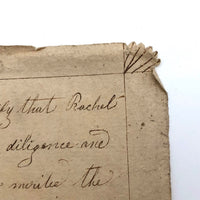 that Rachel
diligence and
merits the